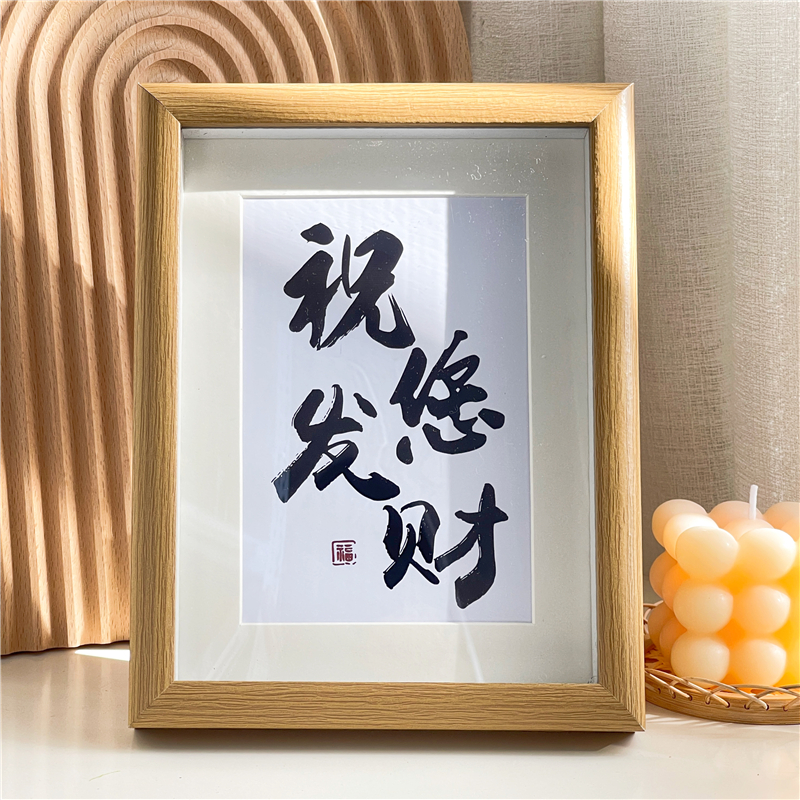 祝
您
发
财
福